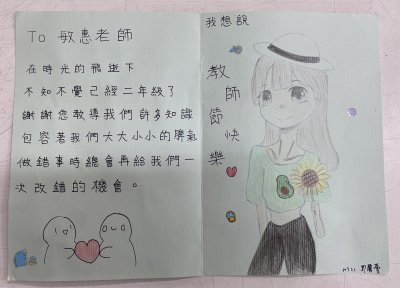 To 敏惠老師
在時光的飛逝下
不知不覺已經二年級了
謝謝您教導我們許多知識
包容著我們大大小小的脾氣
做錯事時總會再給我們一
次改錯的機會。
我想說
教師節快樂